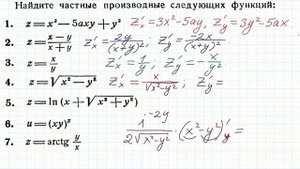 Найдите частные производные следующих функций:
1. z = x³ − 5axy + y³ Z'ₓ = 3x² − 5ay, Z'ᵧ = 3y² − 5ax
2. z = (x − y)/(x + y) Z'ₓ = 2y/(x+y)²; Z'ᵧ = −2x/(x+y)²
3. z = x/y Z'ₓ = 1/y; Z'ᵧ = −x/y²
4. z = √(x² − y²) Z'ₓ = x/√(x²−y²); Z'ᵧ =
5. z = ln (x + √(x² + y²))
6. u = (xy)ᶻ 1·−2y/(2√(x²−y²)) · (x²−y²)'ᵧ =
7. z = arctg y/x